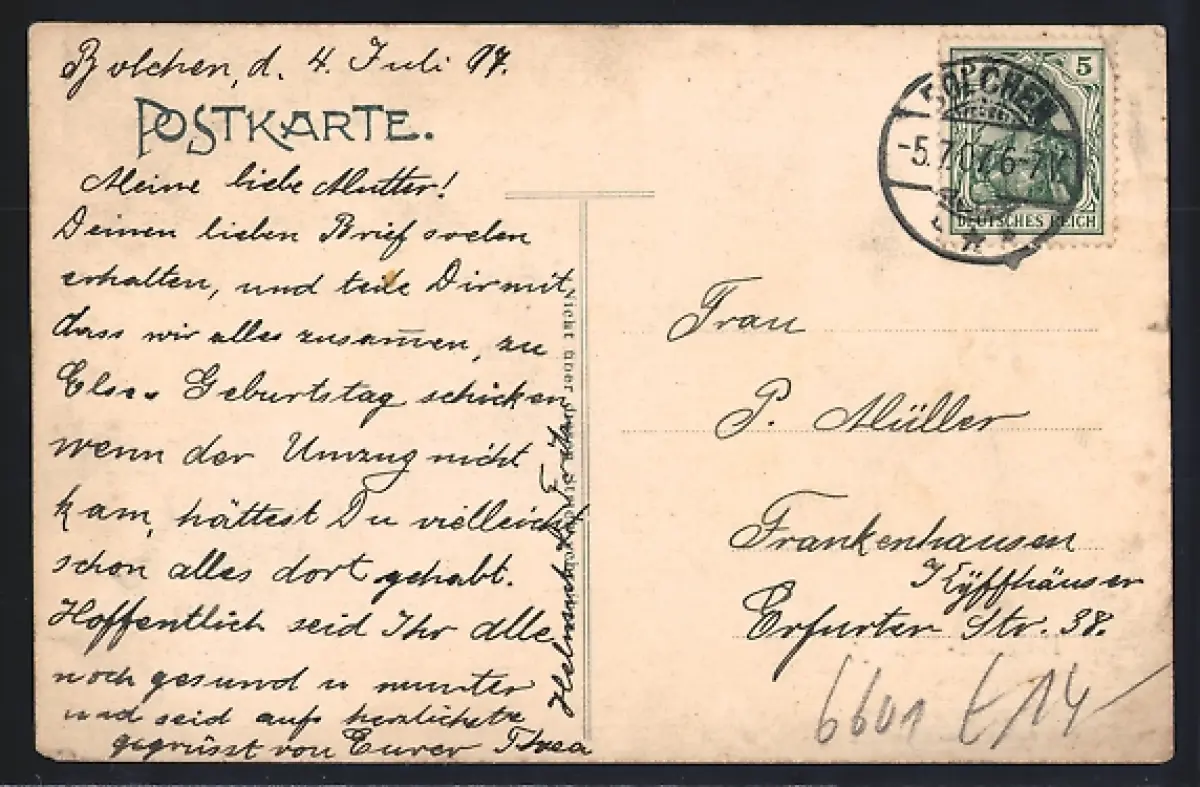 Bolchen, d. 4. Juli 07.
POSTKARTE.
Meine liebe Mutter!
Deinen lieben Brief soeben
erhalten, und teile Dir mit,
dass wir alles zusam̅en, zu
Elses Geburtstag schicken
wenn der Umzug nicht
kam, hättest Du vielleicht
schon alles dort gehabt.
Hoffentlich seid Ihr alle
noch gesund u munter
und seid aufs herzlichste
gegrüsst von Eurer Thea
Nicht über den
5
BOLCHEN
-5.7.07.6-7V.
DEUTSCHES REICH
Frau
P. Müller
Frankenhausen
Kyffhäuser
Erfurter Str. 38.
6601 E/14